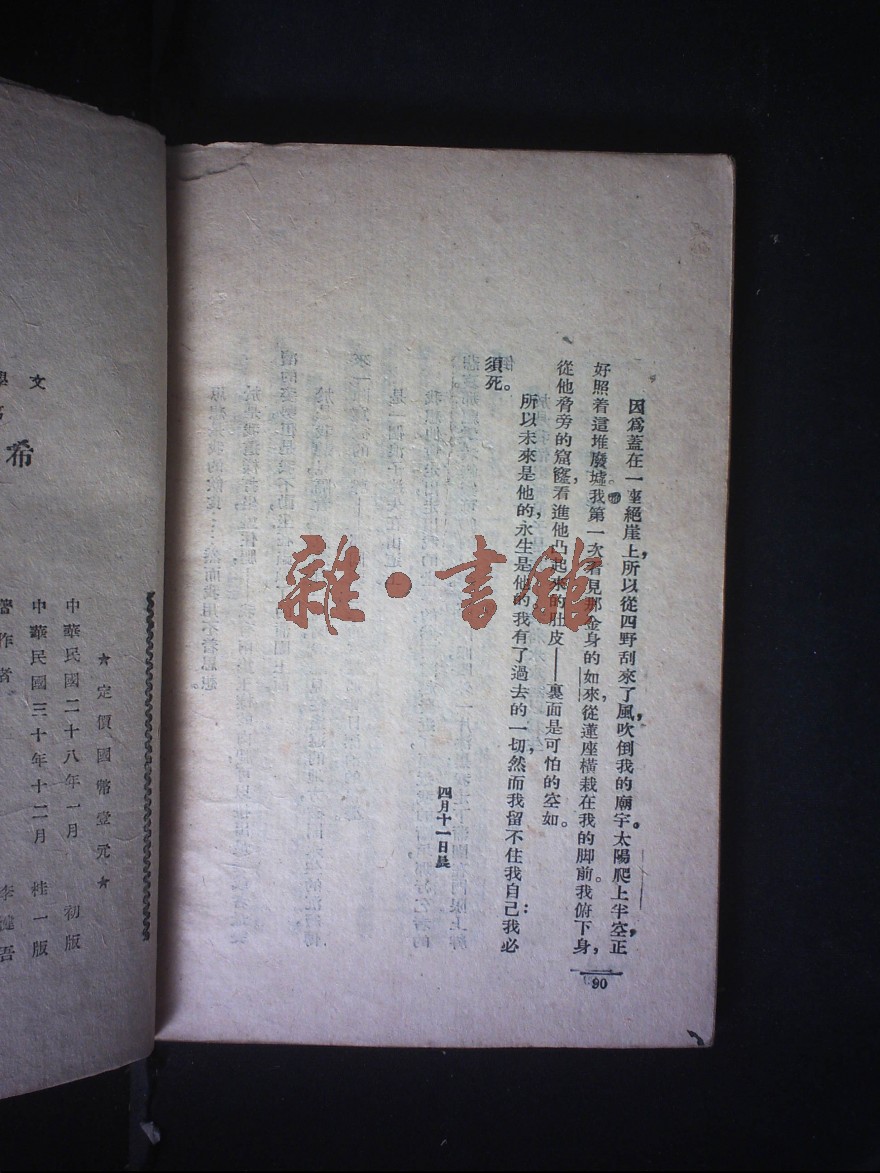 因爲蓋在一座絕崖上，所以從四野刮來了風，吹倒我的廟宇。太陽爬上半空，正
好照着這堆廢墟。我第一次看見那金身的如來從蓮座橫栽在我的脚前。我俯下身，
從他脅旁的窟窿，看進他凸起來的肚皮——裏面是可怕的空如。
所以未來是他的，永生是他的，我有了過去的一切，然而我留不住我自己：我必
須死。
四月十一日晨
90
雜·書館
文學
希
★定價國幣壹元★
中華民國二十八年一月 初版
中華民國三十年十二月 桂一版
著作者 李健吾